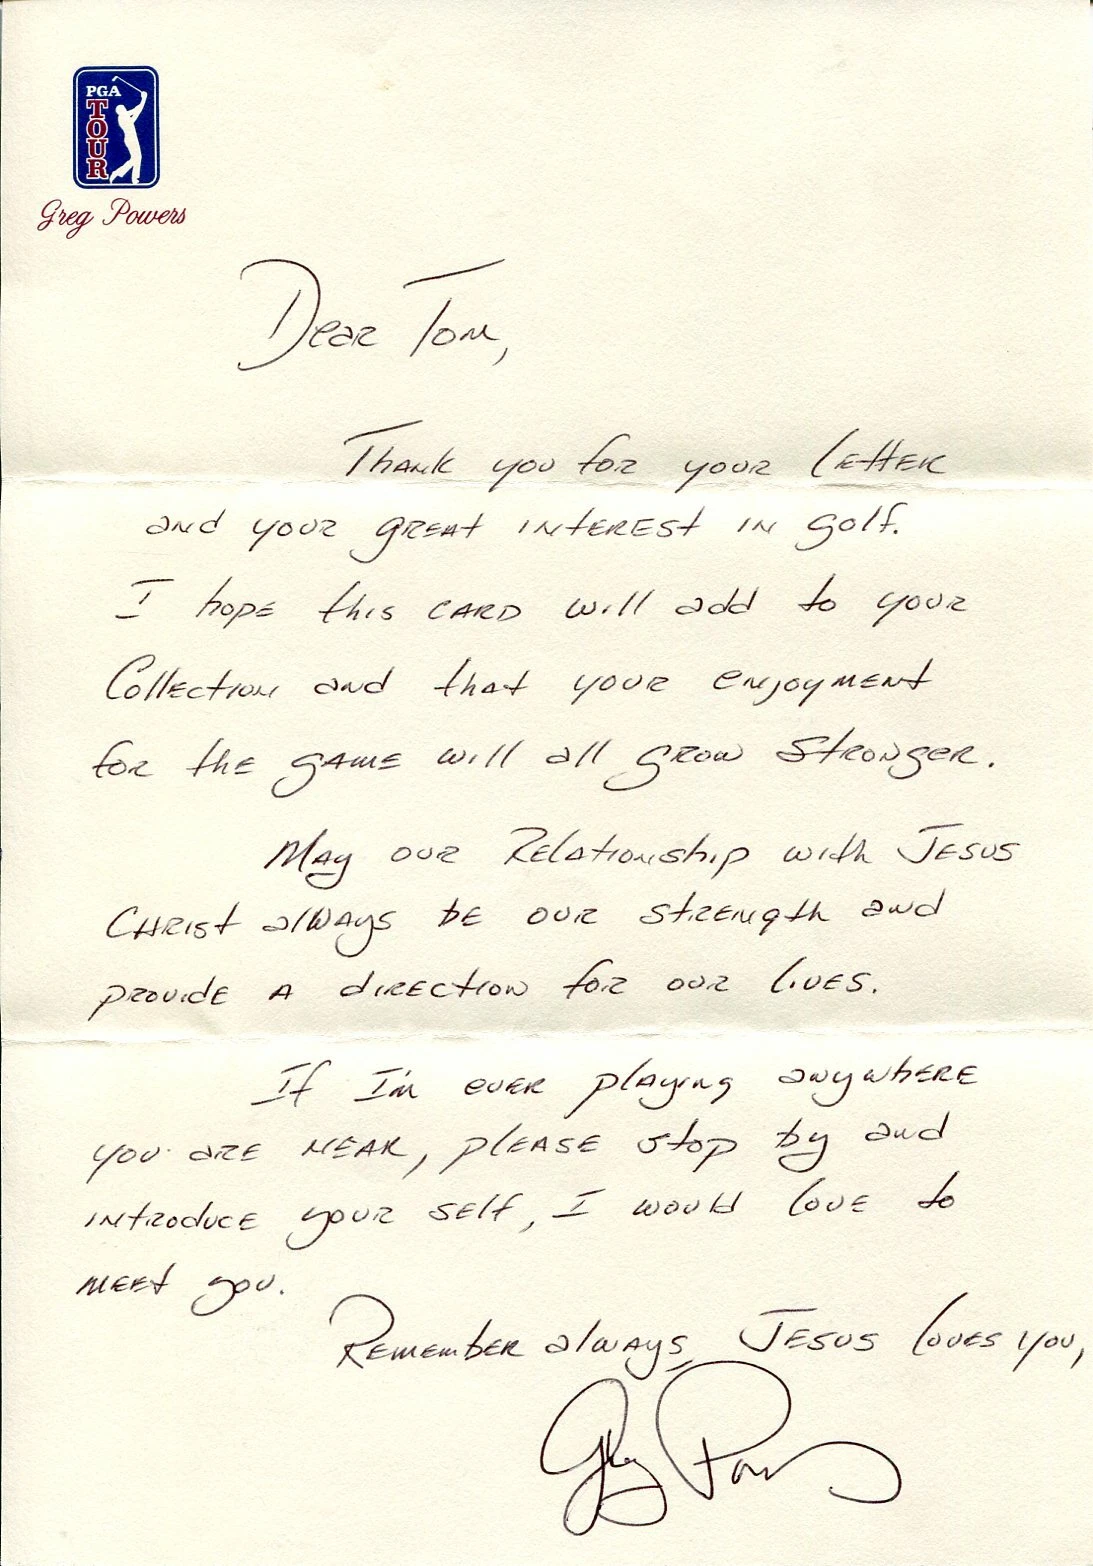 PGA
TOUR
Greg Powers
Dear Tom,
Thank you for your letter
and your great interest in golf.
I hope this card will add to your
Collection and that your enjoyment
for the game will all grow stronger.
May our Relationship with Jesus
Christ always be our strength and
provide a direction for our lives.
If I'm ever playing anywhere
you are near, please stop by and
introduce your self, I would love to
meet you.
Remember always, Jesus loves you,
Greg Powers